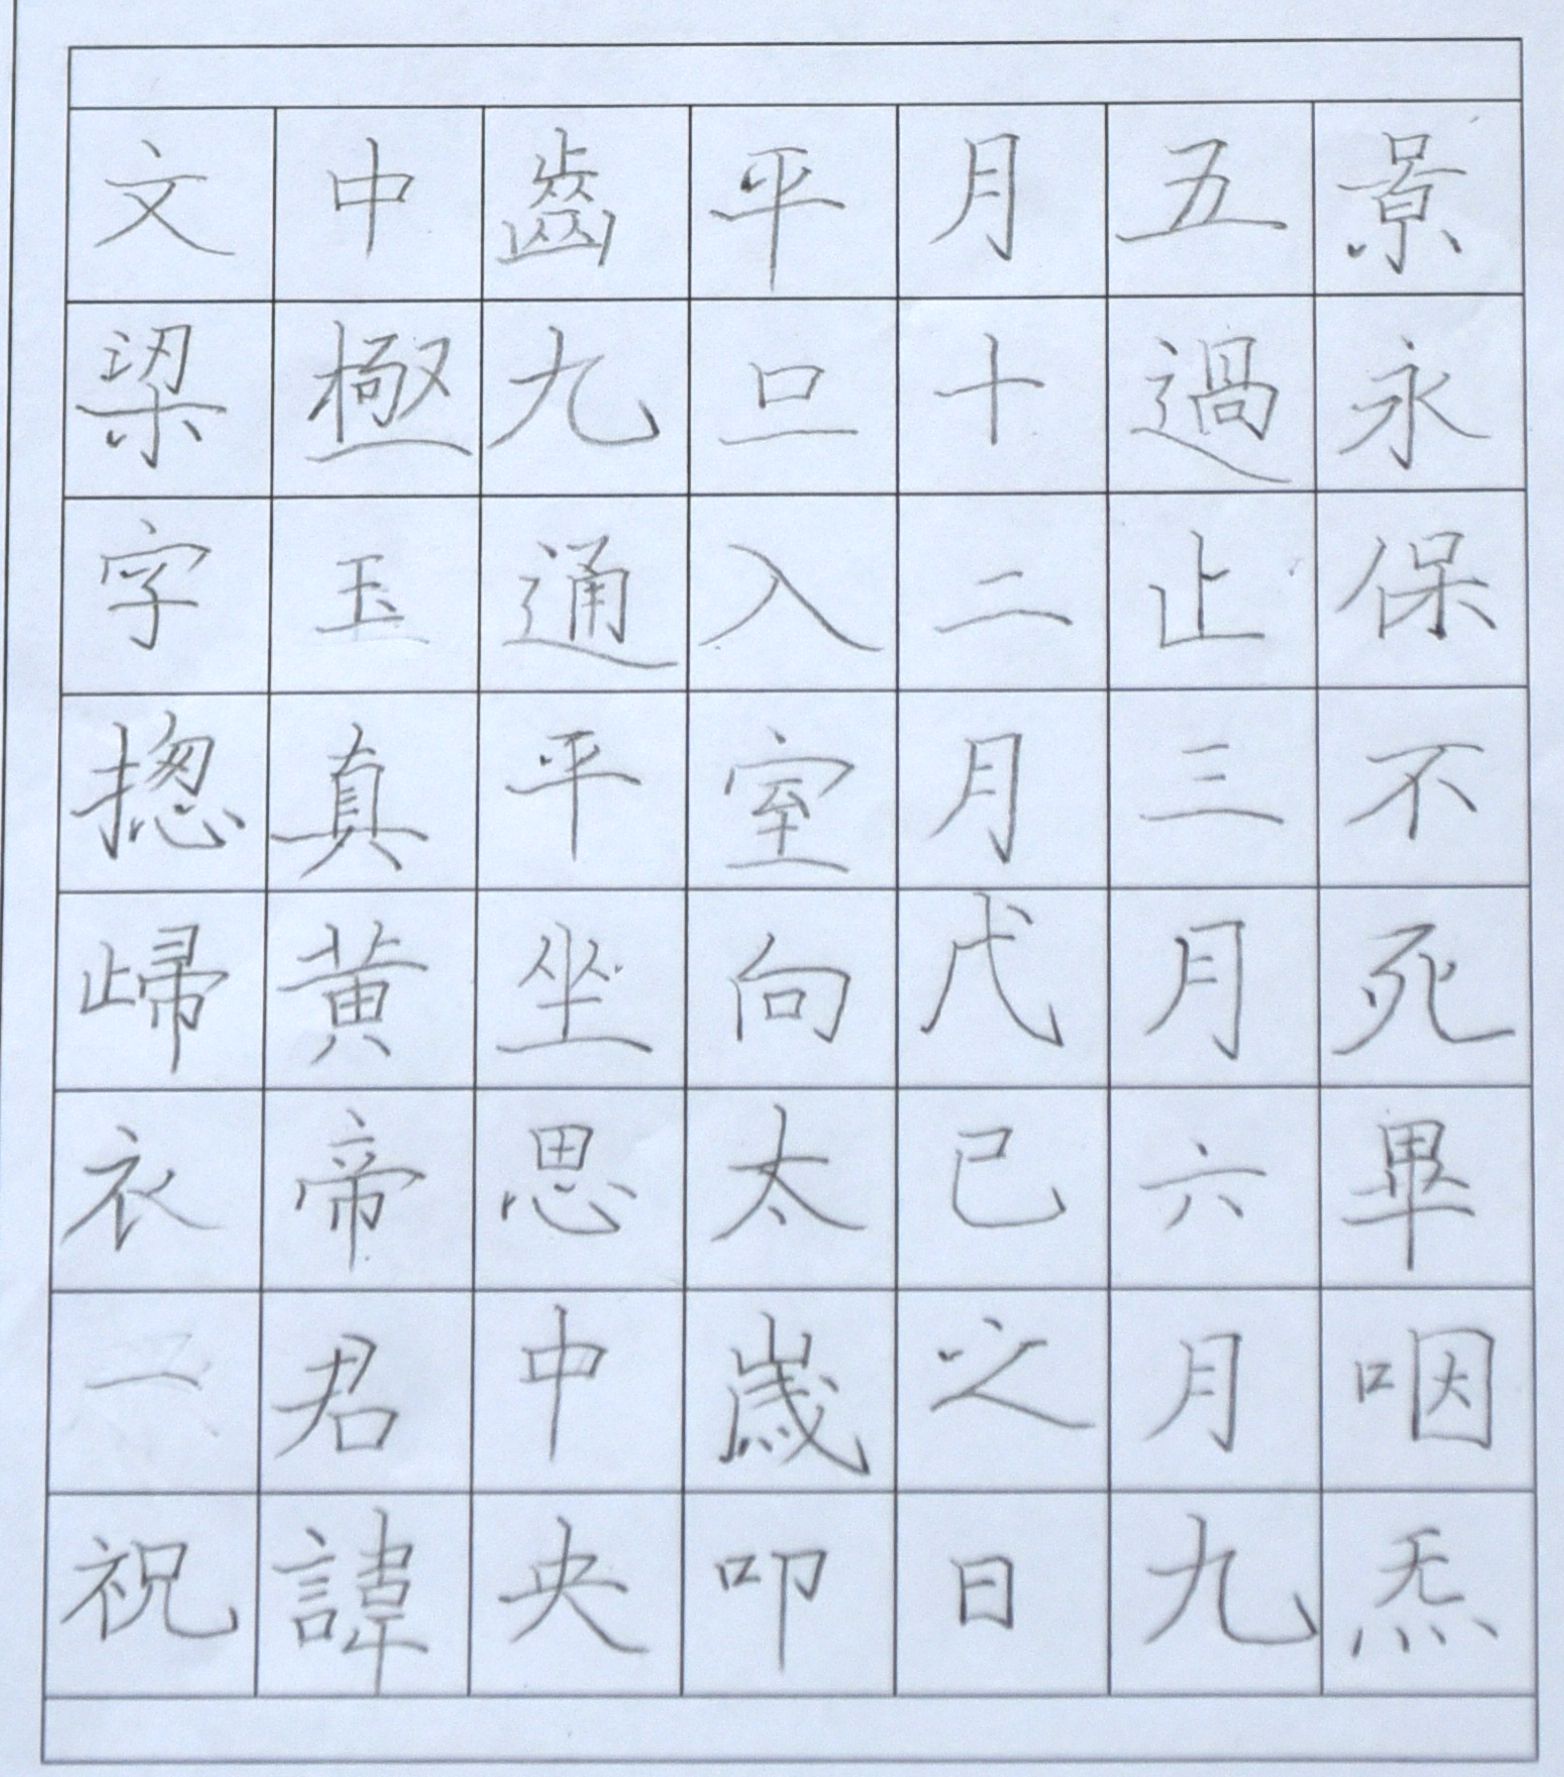 景永保不死畢咽炁
五過止三月六月九
月十二月戊己之日
平旦入室向太歲叩
齒九通平坐思中央
中極玉真黄帝君諱
文梁字揔歸衣一祝